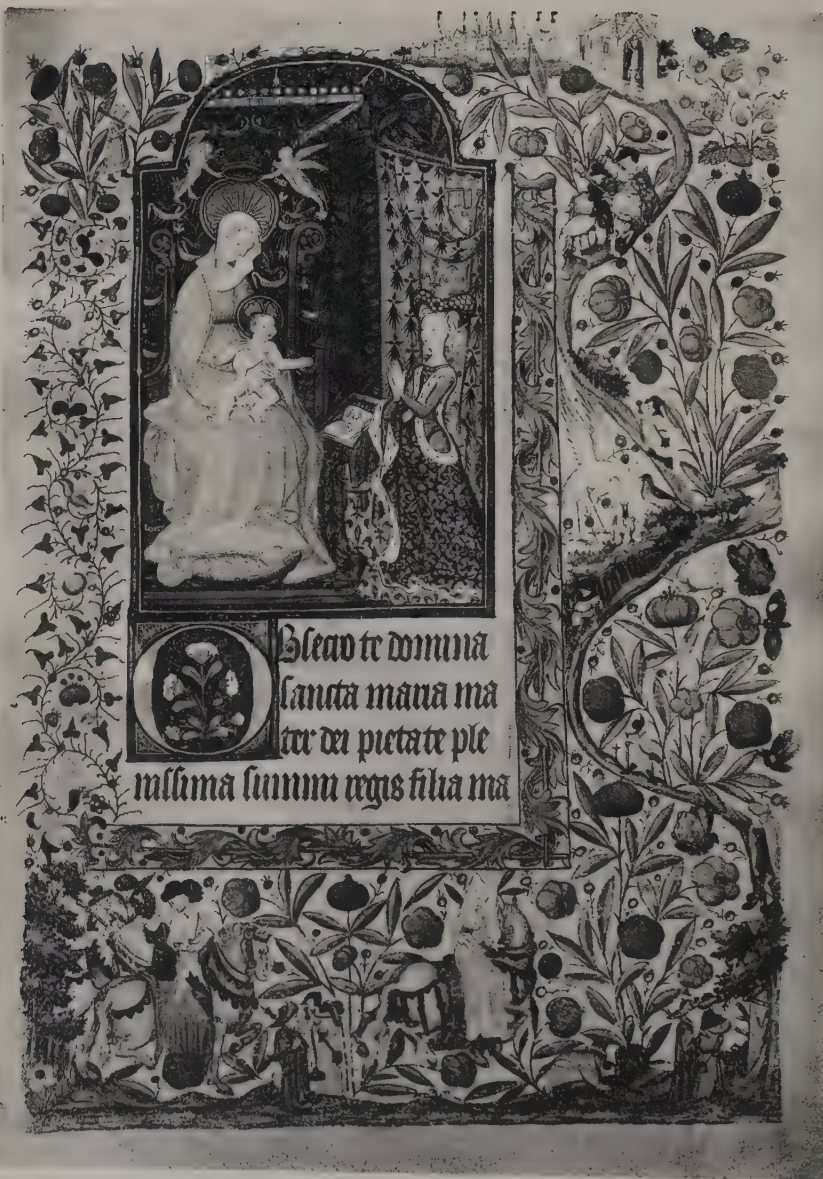 OBsecro te domina
sancta maria ma
ter dei pietate ple
nissima summi regis filia ma